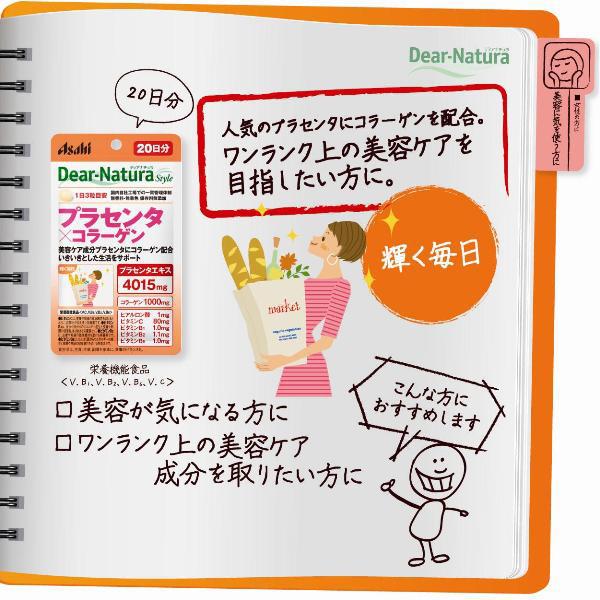 ディアナチュラ
Dear-Natura
■女性の方に
美容に気を使う方に
20日分
人気のプラセンタにコラーゲンを配合。
ワンランク上の美容ケアを
目指したい方に。
輝く毎日
Asahi
20日分
Dear-Natura Style
1日3粒目安
国内自社工場での一貫管理体制
プラセンタ
×コラーゲン
美容ケア成分プラセンタにコラーゲン配合
いきいきとした生活をサポート
輝く毎日
プラセンタエキス
4015mg
コラーゲン1000mg
ヒアルロン酸 1mg
ビタミンC 80mg
ビタミンB1 1.0mg
ビタミンB2 1.1mg
ビタミンB6 1.0mg
market
栄養機能食品
<V.B1、V.B2、V.B6、V.C>
□美容が気になる方に
□ワンランク上の美容ケア
成分を取りたい方に
こんな方に
おすすめします